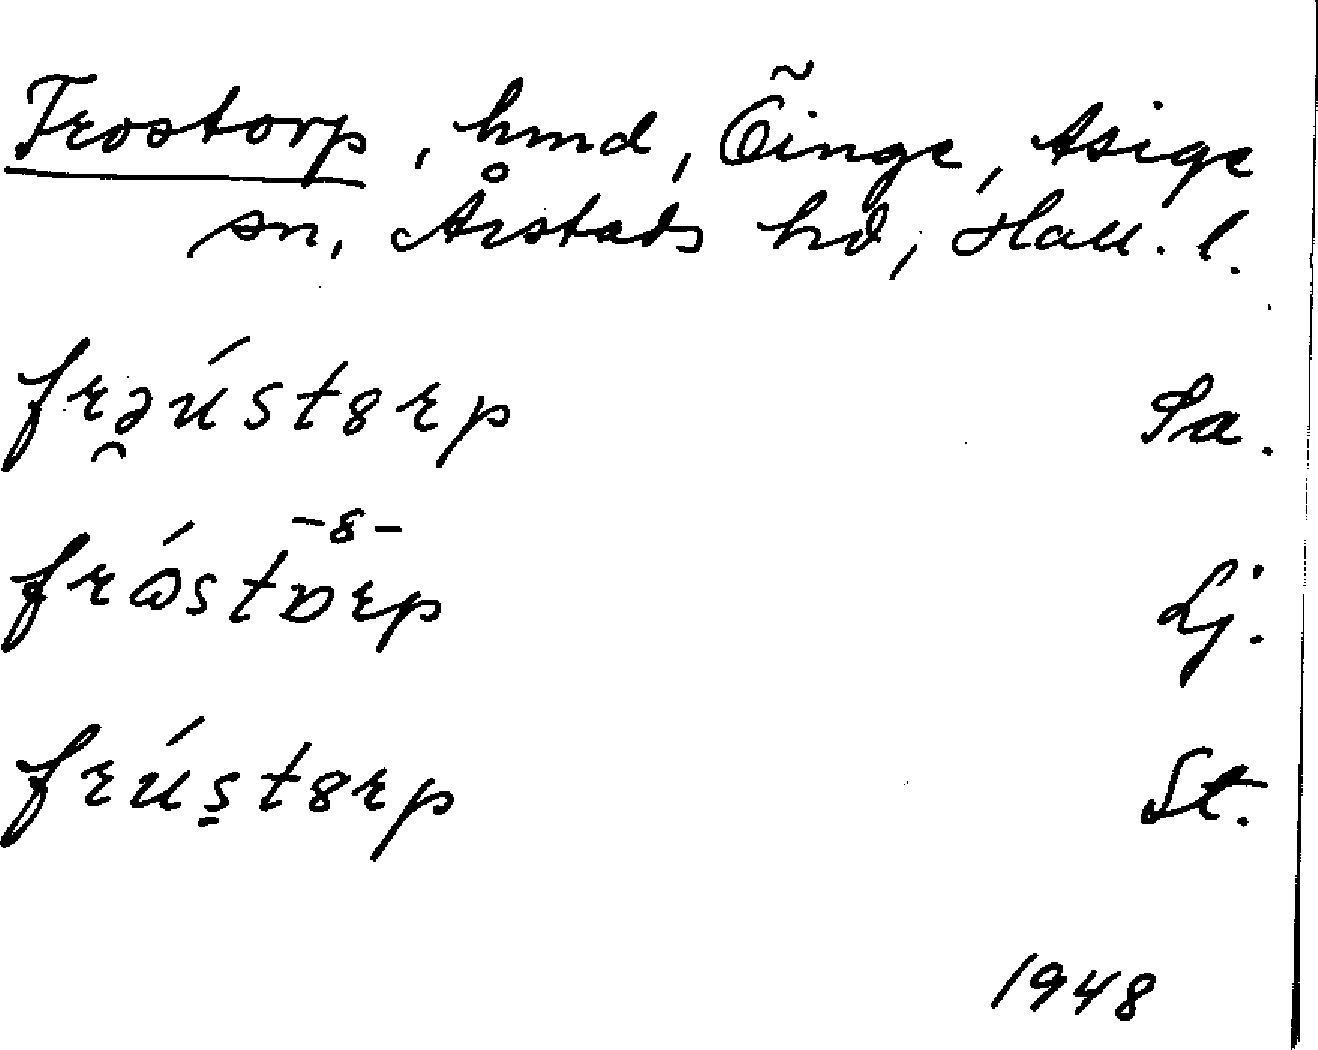 Frostorp, hmd, Öinge, Asige
sn, Årstads hd, Hall. l.
frə̯ústȣrp Sa.
-ȣ-
frɷ́stɒrp Lj.
frús̠tȣrp St.
1948